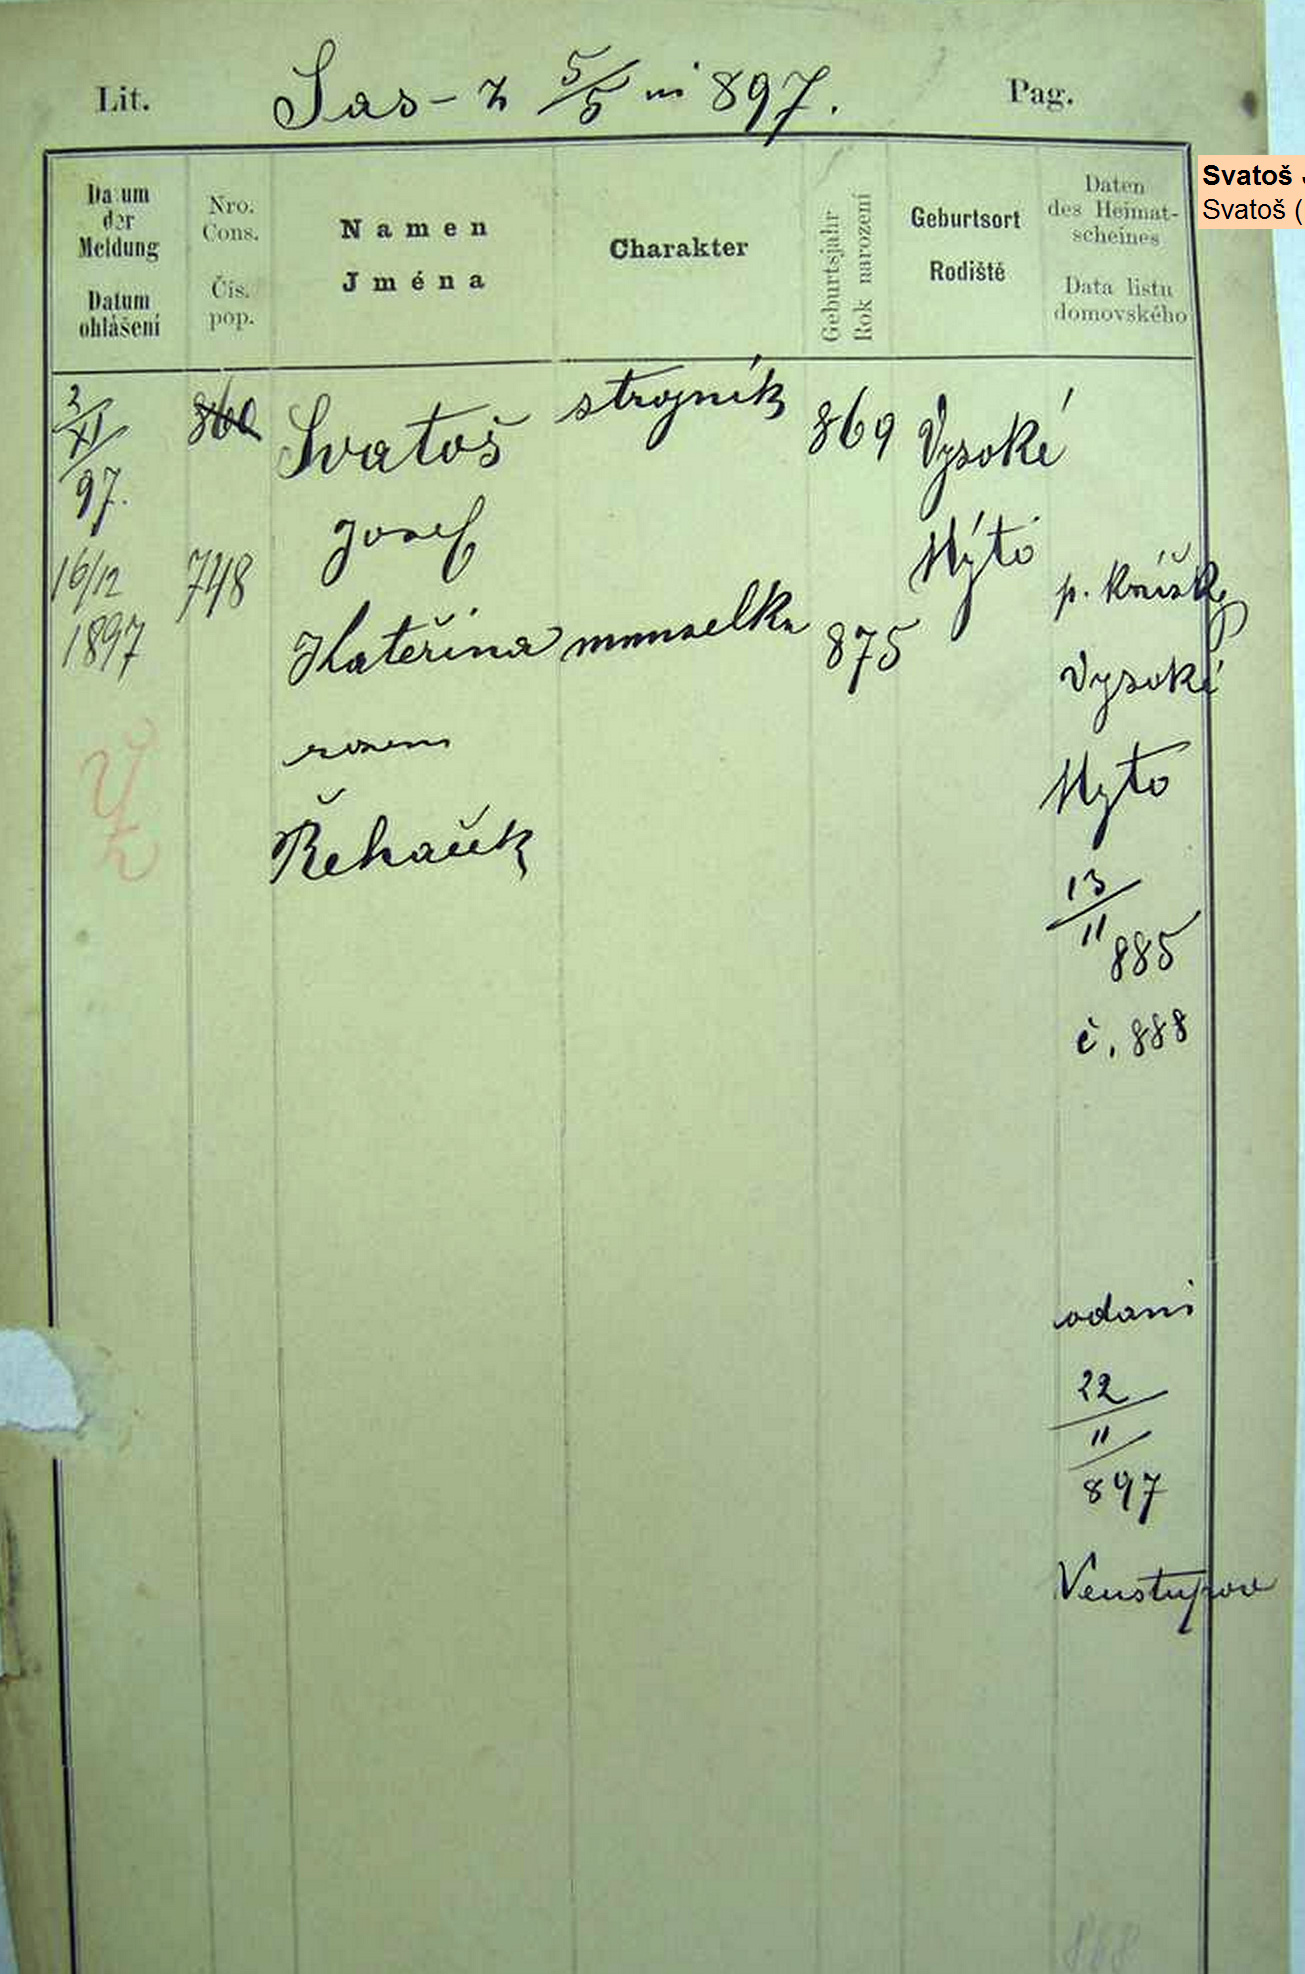 Lit.
Sas - z 5/5 ni 897.
Pag.
Datum
der
Meldung
Datum
ohlášení
Nro.
Cons.
Čís.
pop.
Namen
Jména
Charakter
Geburtsjahr
Rok narození
Geburtsort
Rodiště
Daten
des Heimat-
scheines
Data listu
domovského
Svatoš
Svatoš (
XI
97.
860
Svatoš
strojník
869
Vysoké
Josef
Mýto
16/12
1897
748
p. knížk
Kateřina
manželka
875
Vysoké
Myto
rozen
Řeháček
13
11
885
č. 888
odani
22
11
897
868